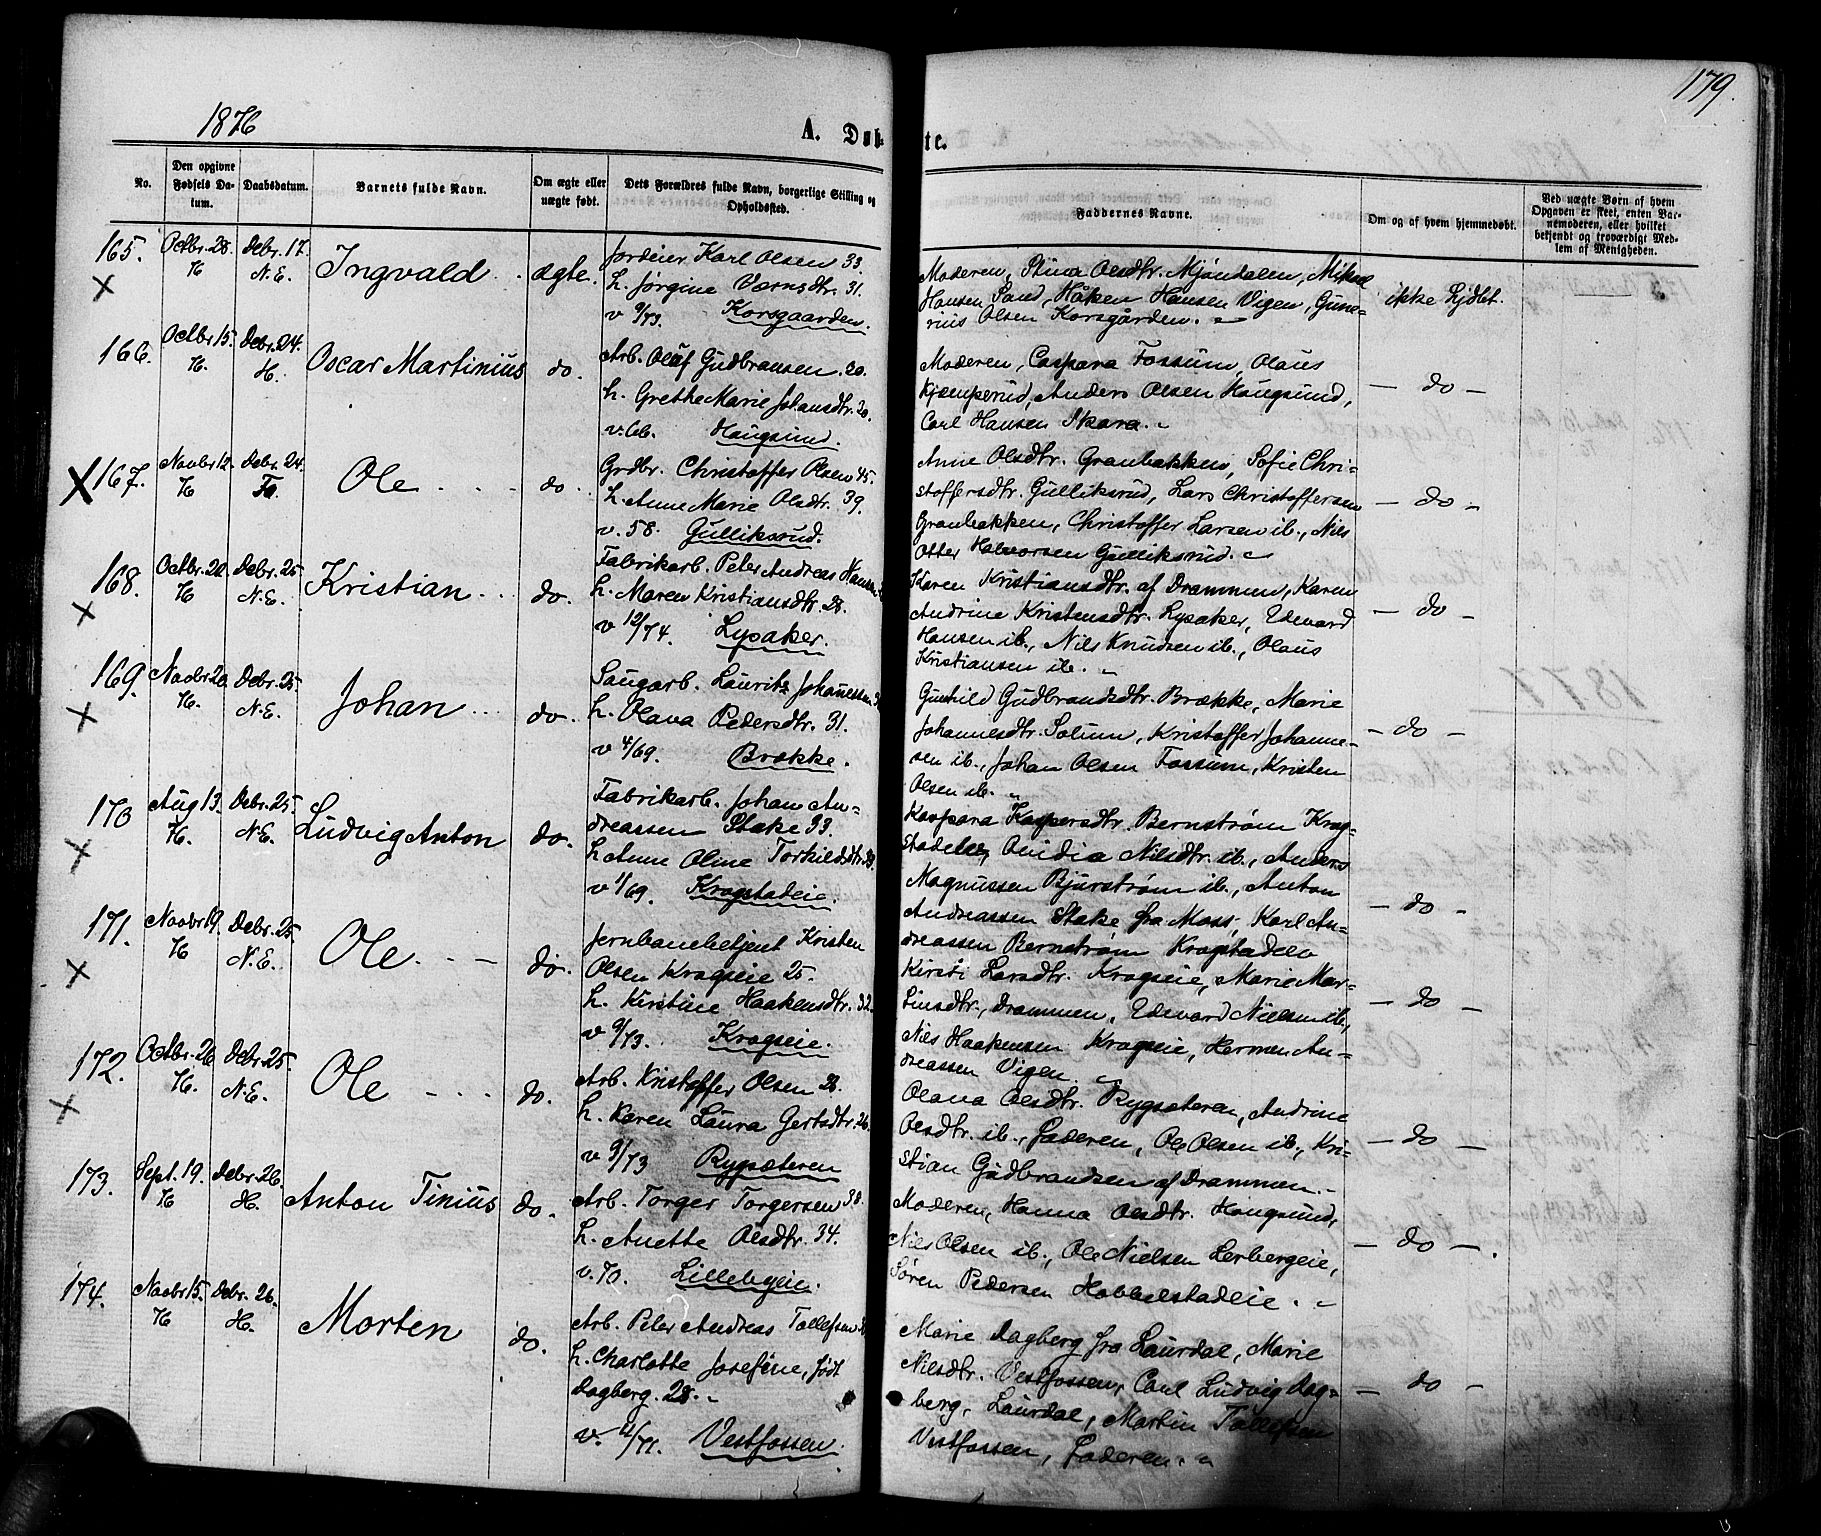 179.
1876
A. Døb-
te.
No.
Den opgivne Fødsels Da-
tum.
Daabsdatum.
Barnets fulde Navn.
Om ægte eller
uægte født.
Dets Forældres fulde Navn, borgerlige Stilling og
Opholdssted.
Faddernes Navne.
Om og af hvem hjemmedøbt.
Ved uægte Børn af hvem
Opgaven er skeet, enten Bar-
nemoderen, eller hvilket
bekjendt og troværdigt Med-
lem af Menigheden.
165. Octbr. 28. Debr. 17. Ingvald. ægte.
H. N.E.
Jordeier Karl Olsen 33.
h. Jørgine Værnsdtr. 31.
v 9/73. Korsgaarden.
Moderen, Stina Olsdtr. Mjöndalen, Mikael
Hansen Sand, Håken Hansen Vigen, Gune-
rius Olsen Korsgården.
ikke hjdbt.
166. Octbr 15. Debr. 24. Oscar Martinius do.
H. H.
Arb. Oluf Gudbransen. 30.
h. Grethe Marie Johansdtr. 20.
v. 66. Hougsund.
Moderen, Caspara Fossum, Olaus
Kjemperud, Anders Olsen Hougsund,
Carl Hansen Skara.
— do —
167. Novbr 12. Debr. 24. Ole do.
H Fo.
Grdbr. Christoffer Olsen 45.
h. Anne Marie Olsdtr. 39.
v. 58. Gulliksrud.
Anne Olsdtr. Granbakken, Sofie Chri-
stoffersdtr. Gulliksrud, Lars Christoffersen
Granbakken, Christoffer Larsen ib., Nils
Otter Halvorsen Gulliksrud.
— do —
168. Octbr. 20. Debr. 25 Kristian do.
H N.E.
Fabrikarb. Peter Andreas Hansen
h. Maren Kristiansdtr. 28.
v 12/74. Lysaker.
Karen Kristiansdtr. af Drammen, Karen
Andrine Kristensdtr. Lysaker, Edevard
Hansen ib., Nils Knudsen ib., Olaus
Kristiansen ib.
— do —
169. Novbr 20. Debr. 25. Johan do.
H. N.E.
Saugarb. Lauritz Johanessen
h. Olava Pedersdtr. 31.
v 4/69. Brække.
Gunhild Gudbrandsdtr. Brække, Marie
Johannesdtr. Solum, Kristoffer Johanne-
sen ib., Johan Olsen Fossum, Kristen
Olsen ib.
— do —
170 Aug 13. Debr. 25. Ludvig Anton do.
H. N.E.
Fabrikarb. Johan An-
dreassen Stake 33.
h Anne Oline Torkildsdtr.
v 1/69. Krogstadeie.
Kaspara Kaspersdtr. Bernstrøm Krog-
stadelv, Ovidia Nilsdtr. ib., Anders
Magnussen Bjurstrøm ib., Anton
Andreassen Stake fra Moss, Karl An-
dreassen Bernstrøm Krogstadelv
— do —
171. Novbr 19. Debr. 25. Ole do.
H N.E.
Jernbanebetjent Kristen
Olsen Krogseie 25.
h. Kirstine Haakensdtr. 32.
v 9/73. Krogseie.
Kirsti Larsdtr. Krogseie, Marie Mar-
tinsdtr., Drammen, Edevard Nielsen ib.,
Nils Haakensen Krogseie, Herman An-
dreassen Vigen.
— do —
172. Octbr. 26 Debr. 25. Ole do.
H. N.E.
Arb. Kristoffer Olsen 28.
h. Karen Laura Gertsdtr. 26.
v 3/73 Rygsæteren
Olava Olsdtr. Rygsæteren, Andrine
Olsdtr. ib., Faderen, Ole Olsen ib., Kri-
stian Gudbrandsen af Drammen.
— do —
173. Sept. 19. Debr. 26. Anton Tinius do.
H H.
Arb. Torger Torgersen 38.
h. Anette Olsdtr. 34.
v. 70. Lillebyeie.
Moderen, Hanna Olsdtr. Hougsund,
Nils Olsen ib., Ole Nielsen Lerbergeie,
Søren Pedersen Hobbelstadeie.
— do —
174. Novbr 15. Debr. 26. Morten do.
H H.
Arb. Peter Andreas Tollefsen
h. Charlotte Josefine, født
Dagberg. 28.
v. 12/71. Vestfossen.
Marie Dagberg fra Laurdal, Marie
Nilsdtr. Vestfossen, Carl Ludvig Dag-
berg, Laurdal, Martin Tollefsen
Vestfossen, Faderen.
— do —